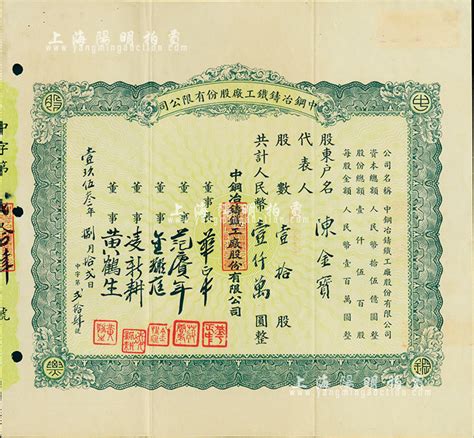 上海陽明拍賣
www.yangmingauction.com
中鋼冶鑄鐵工廠股份有限公司
公司名稱 中鋼冶鑄鐵工廠股份有限公司
資本總額 人民幣拾伍億圓
股份總額 壹仟伍百股
每股金額 人民幣壹百萬圓
股東戶名 陳金寶
代表人
股數 壹拾股
共計人民幣 壹仟萬圓整
中鋼冶鑄鐵工廠股份有限公司
董事
董事 范賡年
董事
董事 凌新耕
董事 黄鶴生
壹玖伍叁年 捌月拾貳日
中字第 貳拾肆號
中字第
號
上海陽明拍賣
www.yangmingauction.com